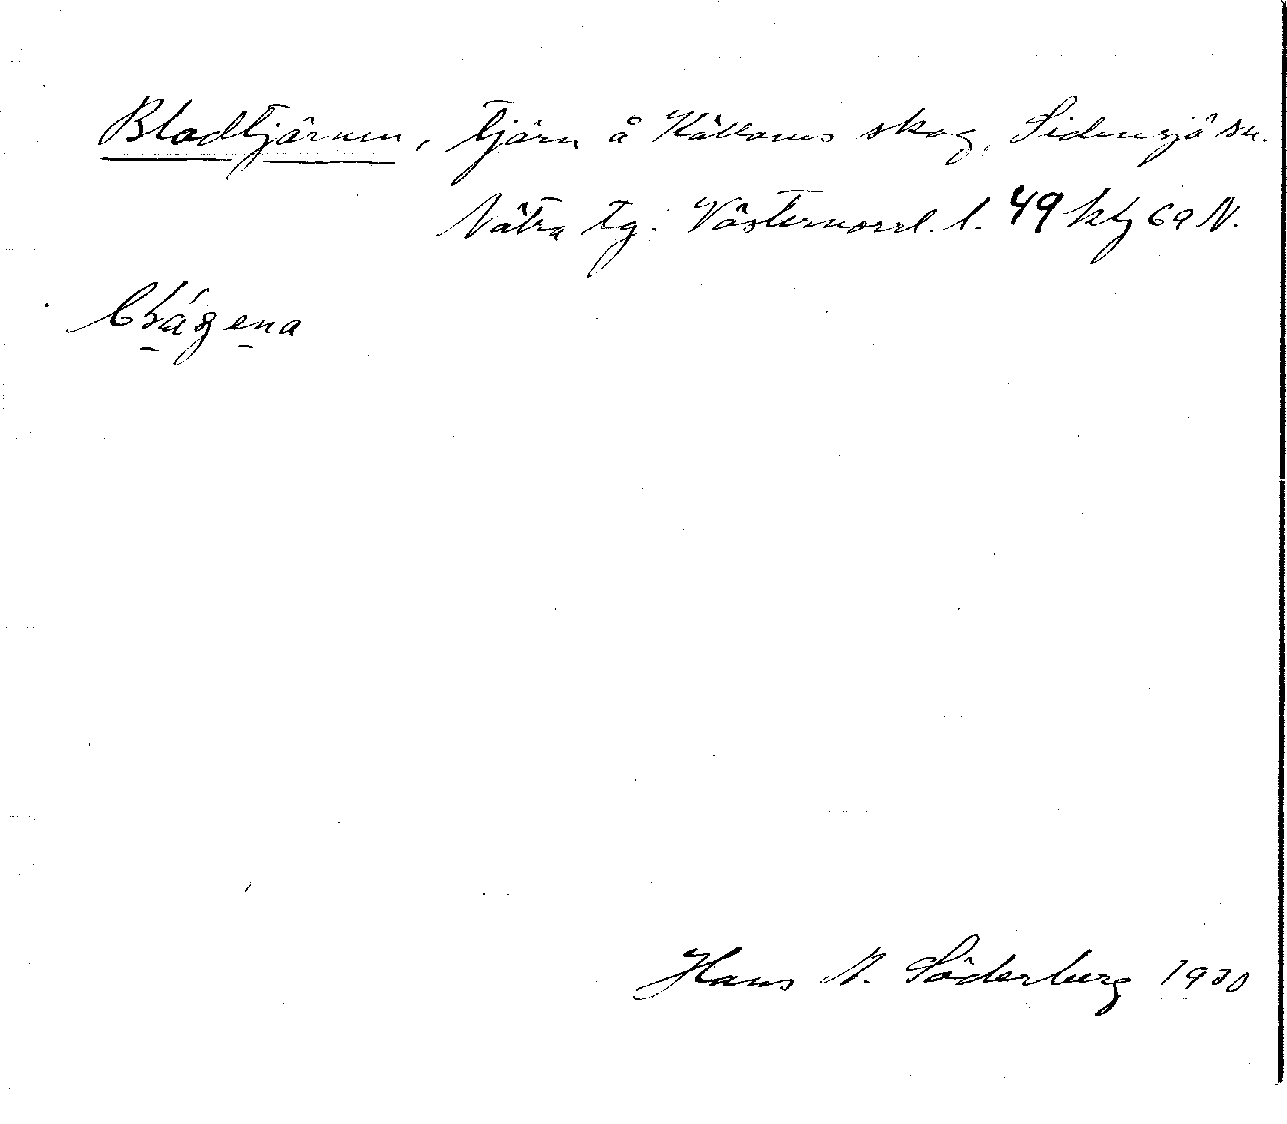 Bladtjärnen, tjärn å Källoms skog, Sidensjö sn.
Nätra tg. Västernorrl. l. 49 kbj 69 N.
Hans N. Söderberg 1930